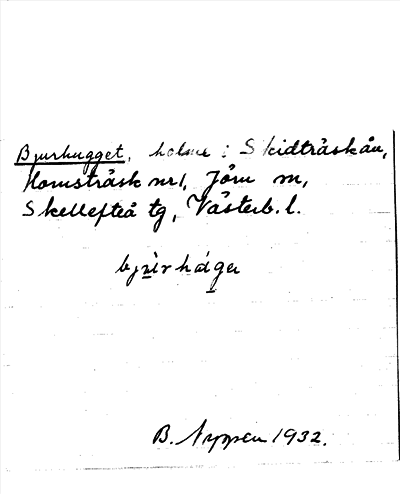 Bjurhugget, holme i Skidträskån,
Hornsträsk nr1, Jörn sn,
Skellefteå tg, Västerb. l.
bjùrháger
B. Nyppen 1932.